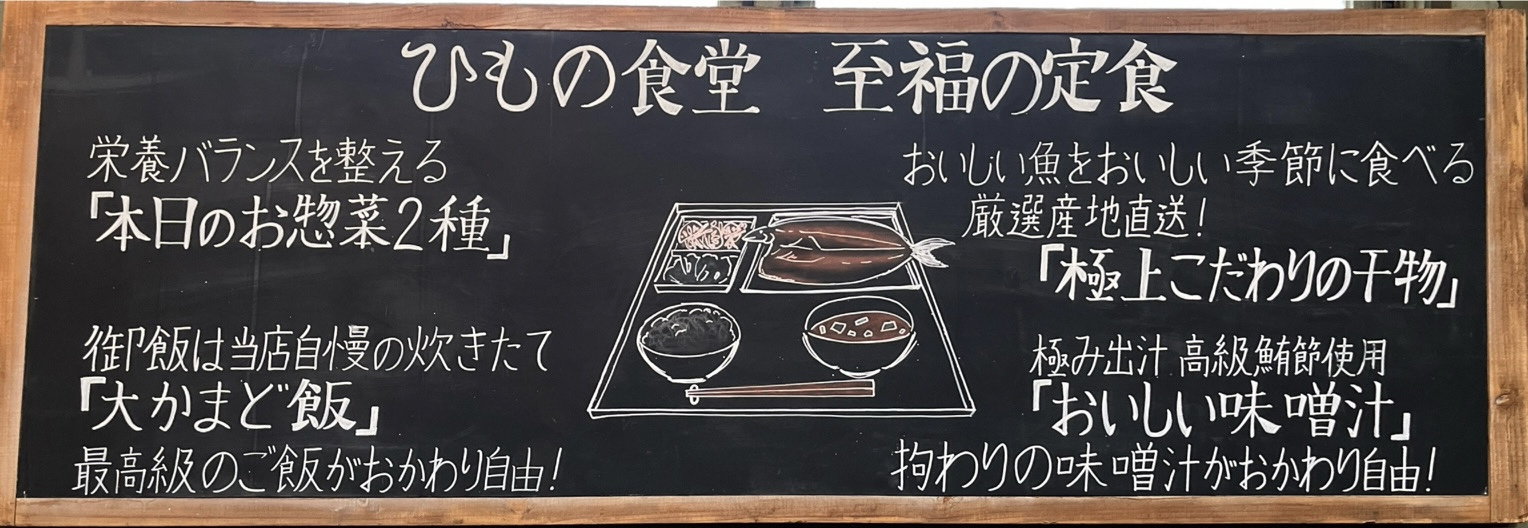 ひもの食堂 至福の定食
栄養バランスを整える
「本日のお惣菜2種」
御飯は当店自慢の炊きたて
「大かまど飯」
最高級のご飯がおかわり自由!
おいしい魚をおいしい季節に食べる
厳選産地直送!
「極上こだわりの干物」
極み出汁 高級鮪節使用
「おいしい味噌汁」
拘わりの味噌汁がおかわり自由!